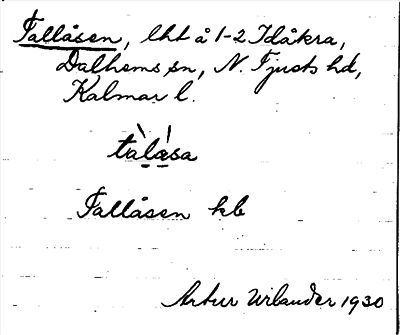 Tallåsen, lht å 1-2 Idåkra,
Dalhems sn, N. Tjusts hd,
Kalmar l.
tàlǻsa
Tallåsen kb
Artur Urlander 1930